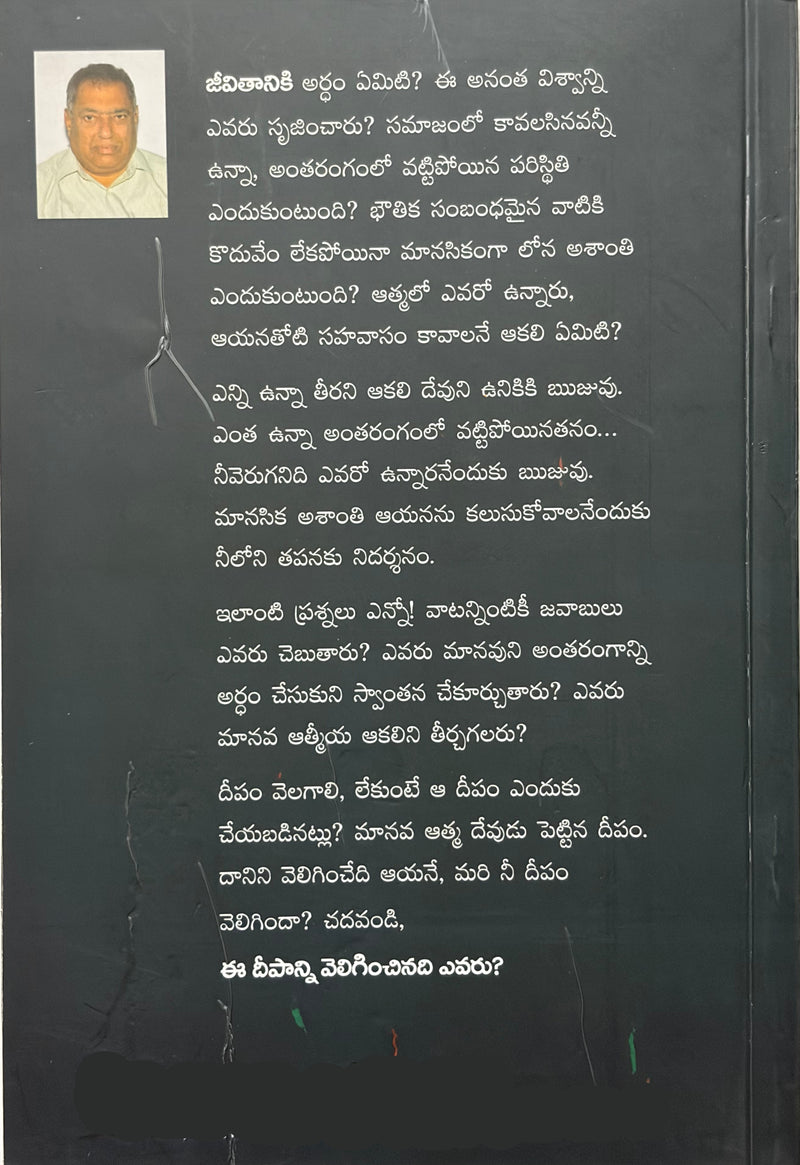 జీవితానికి అర్ధం ఏమిటి? ఈ అనంత విశ్వాన్ని
ఎవరు సృజించారు? సమాజంలో కావలసినవన్నీ
ఉన్నా, అంతరంగంలో వట్టిపోయిన పరిస్థితి
ఎందుకుంటుంది? భౌతిక సంబంధమైన వాటికి
కొదువేం లేకపోయినా మానసికంగా లోన అశాంతి
ఎందుకుంటుంది? ఆత్మలో ఎవరో ఉన్నారు,
ఆయనతోటి సహవాసం కావాలనే ఆకలి ఏమిటి?
ఎన్ని ఉన్నా తీరని ఆకలి దేవుని ఉనికికి ఋజువు.
ఎంత ఉన్నా అంతరంగంలో వట్టిపోయినతనం...
నీవెరుగనిది ఎవరో ఉన్నారనేందుకు ఋజువు.
మానసిక అశాంతి ఆయనను కలుసుకోవాలనేందుకు
నీలోని తపనకు నిదర్శనం.
ఇలాంటి ప్రశ్నలు ఎన్నో! వాటన్నింటికీ జవాబులు
ఎవరు చెబుతారు? ఎవరు మానవుని అంతరంగాన్ని
అర్ధం చేసుకుని స్వాంతన చేకూర్చుతారు? ఎవరు
మానవ ఆత్మీయ ఆకలిని తీర్చగలరు?
దీపం వెలగాలి, లేకుంటే ఆ దీపం ఎందుకు
చేయబడినట్లు? మానవ ఆత్మ దేవుడు పెట్టిన దీపం.
దానిని వెలిగించేది ఆయనే, మరి నీ దీపం
వెలిగిందా? చదవండి,
ఈ దీపాన్ని వెలిగించినది ఎవరు?